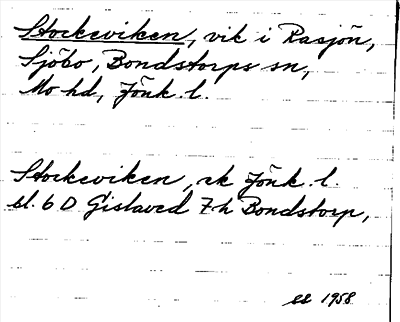 Stockeviken, vik i Rasjön,
Sjöbo, Bondstorps sn,
Mo hd, Jönk. l.
Stockeviken, ek Jönk. l.
bl. 6 D Gislaved 7 h Bondstorp,
1958